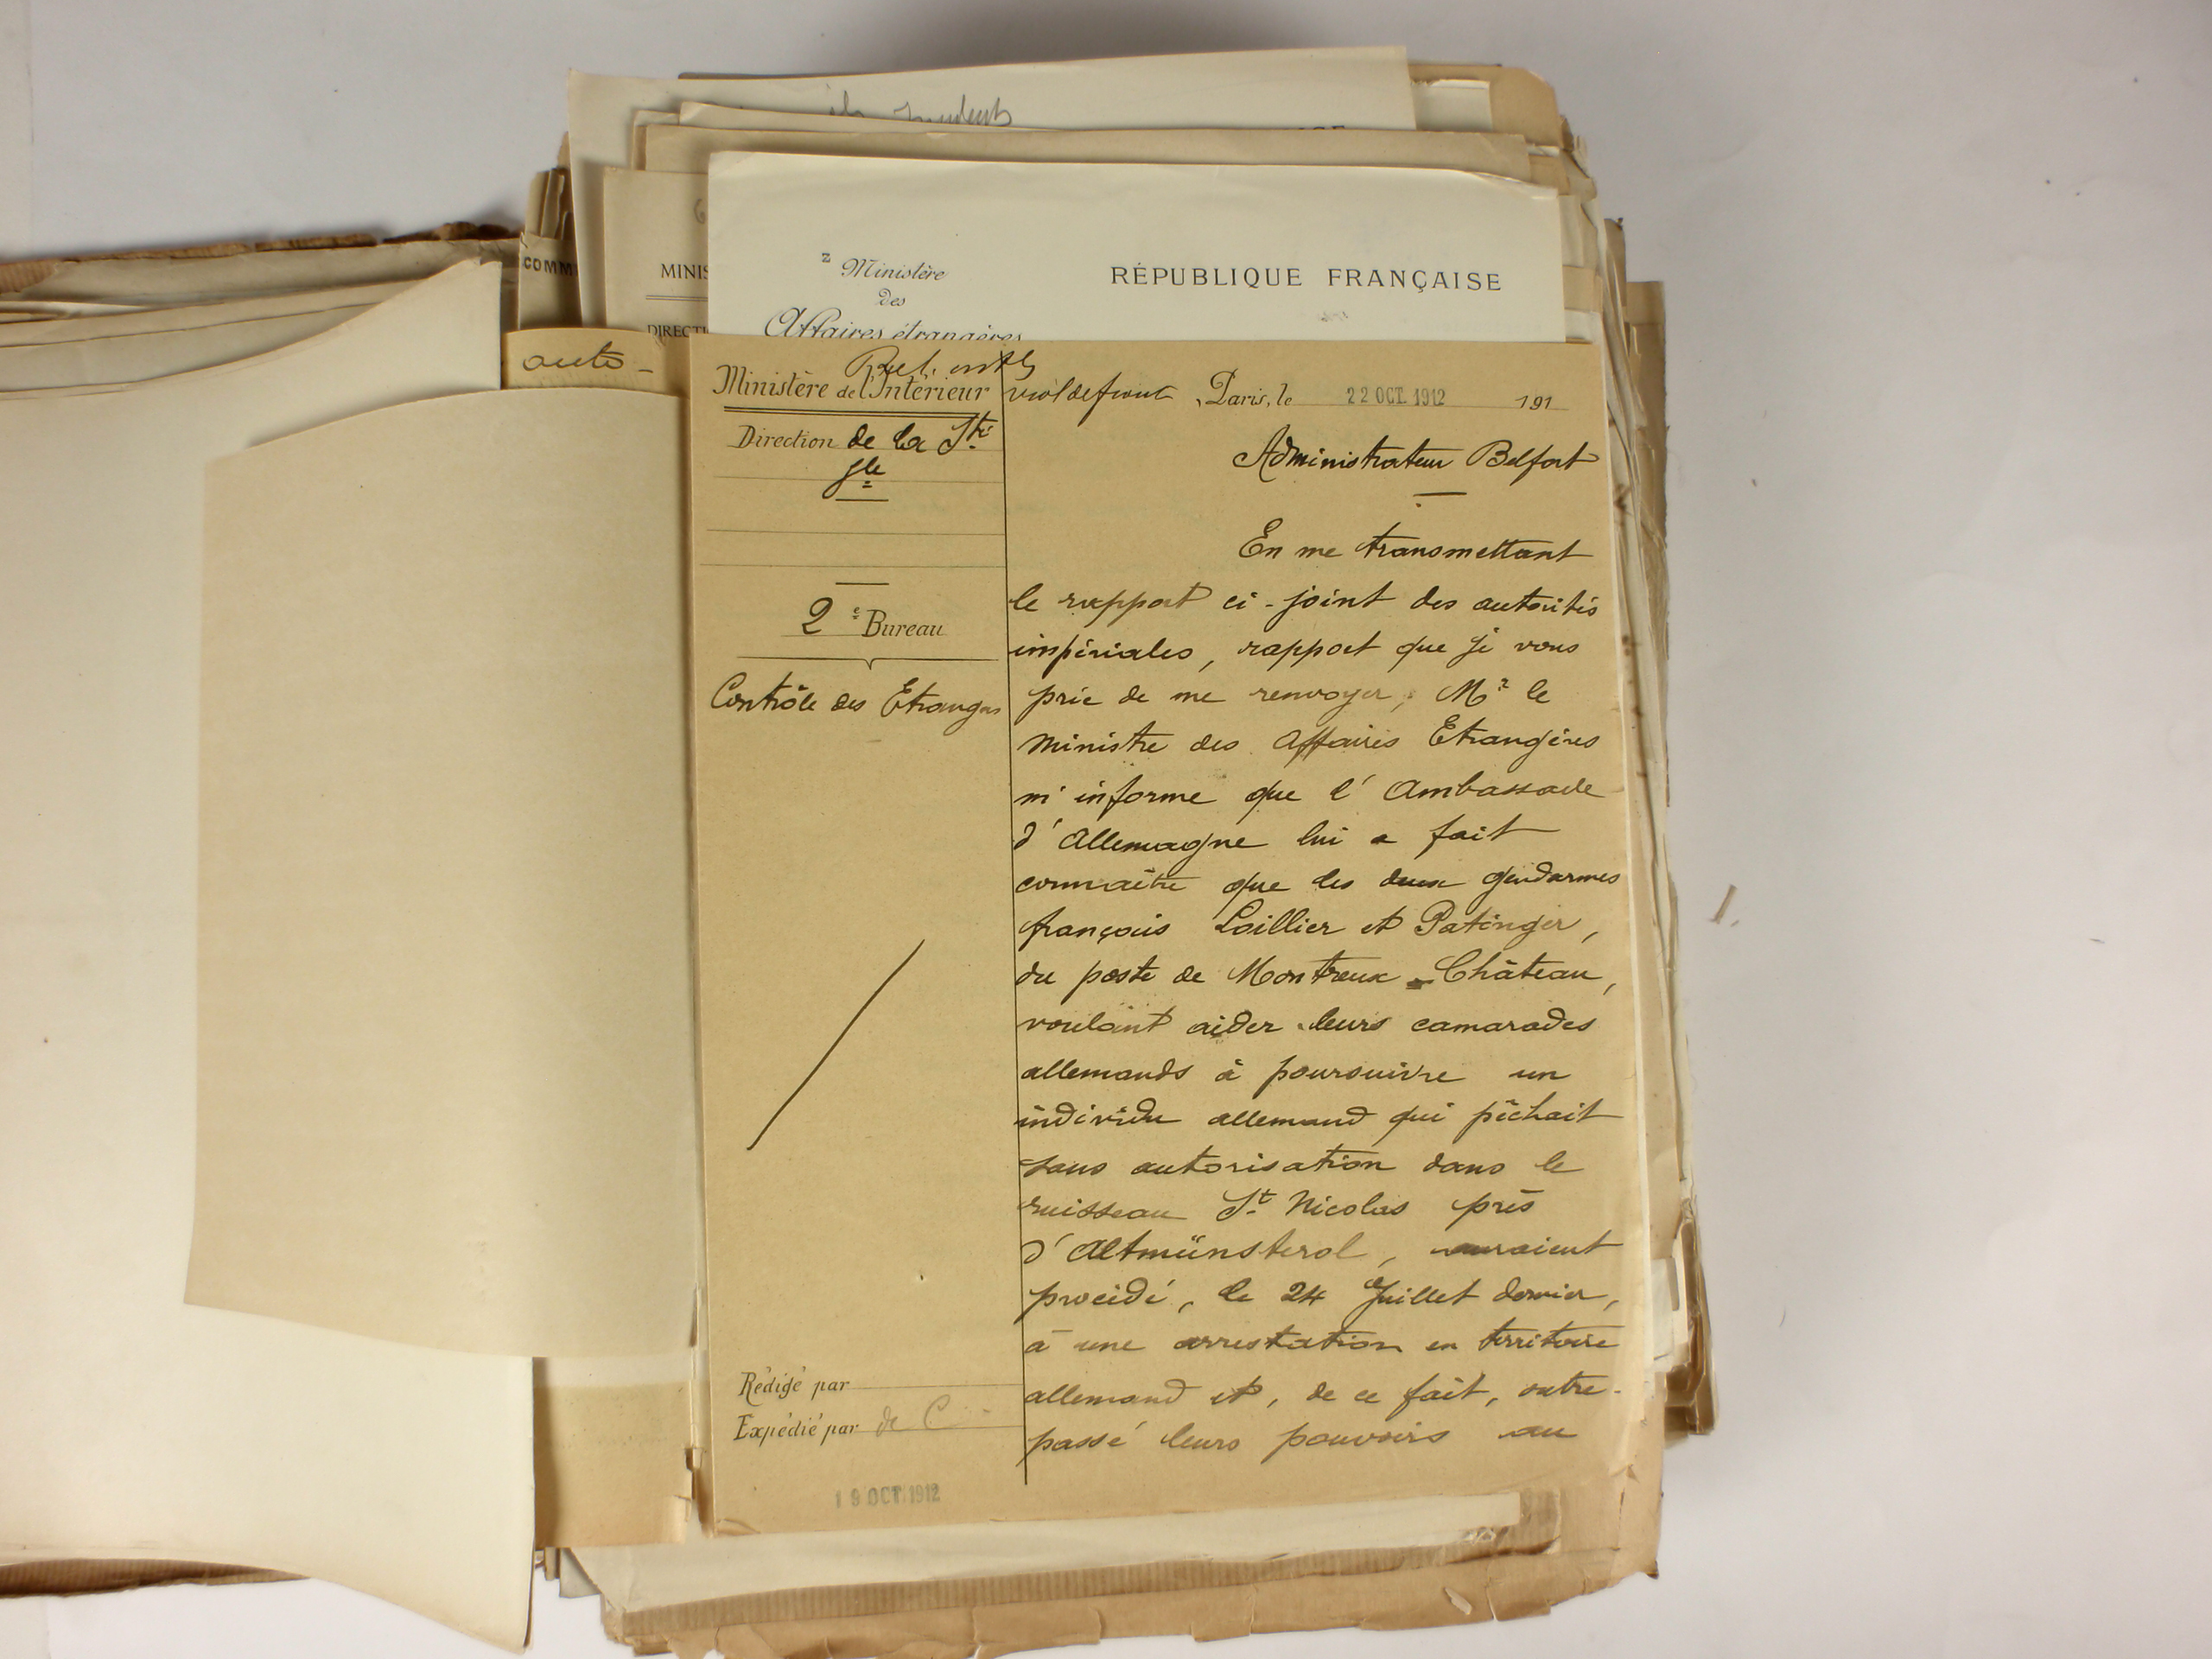 Ministère
des
Affaires étrangères
RÉPUBLIQUE FRANÇAISE
COMM
MINIS
DIRECTI
auto-
Ministère de l'Intérieur
Direction de la Sté
gle
2e Bureau
Contrôle des Etrangers
Rédigé par
Expédié par de C
19 OCT. 1912
viol de front
Paris, le 22 OCT. 1912 191
Administrateur Belfort
En me transmettant
le rapport ci-joint des autorités
impériales, rapport que je vous
prie de me renvoyer, Mr le
Ministre des Affaires Etrangères
m'informe que l'Ambassade
d'Allemagne lui a fait
connaître que les deux gendarmes
français Loillier et Patinger,
du poste de Montreux-Château,
voulant aider leurs camarades
allemands à poursuivre un
individu allemand qui pêchait
sans autorisation dans le
ruisseau St Nicolas près
d'Altmünsterol, auraient
procédé, le 24 Juillet dernier,
à une arrestation en territoire
allemand et, de ce fait, outre-
passé leurs pouvoirs au